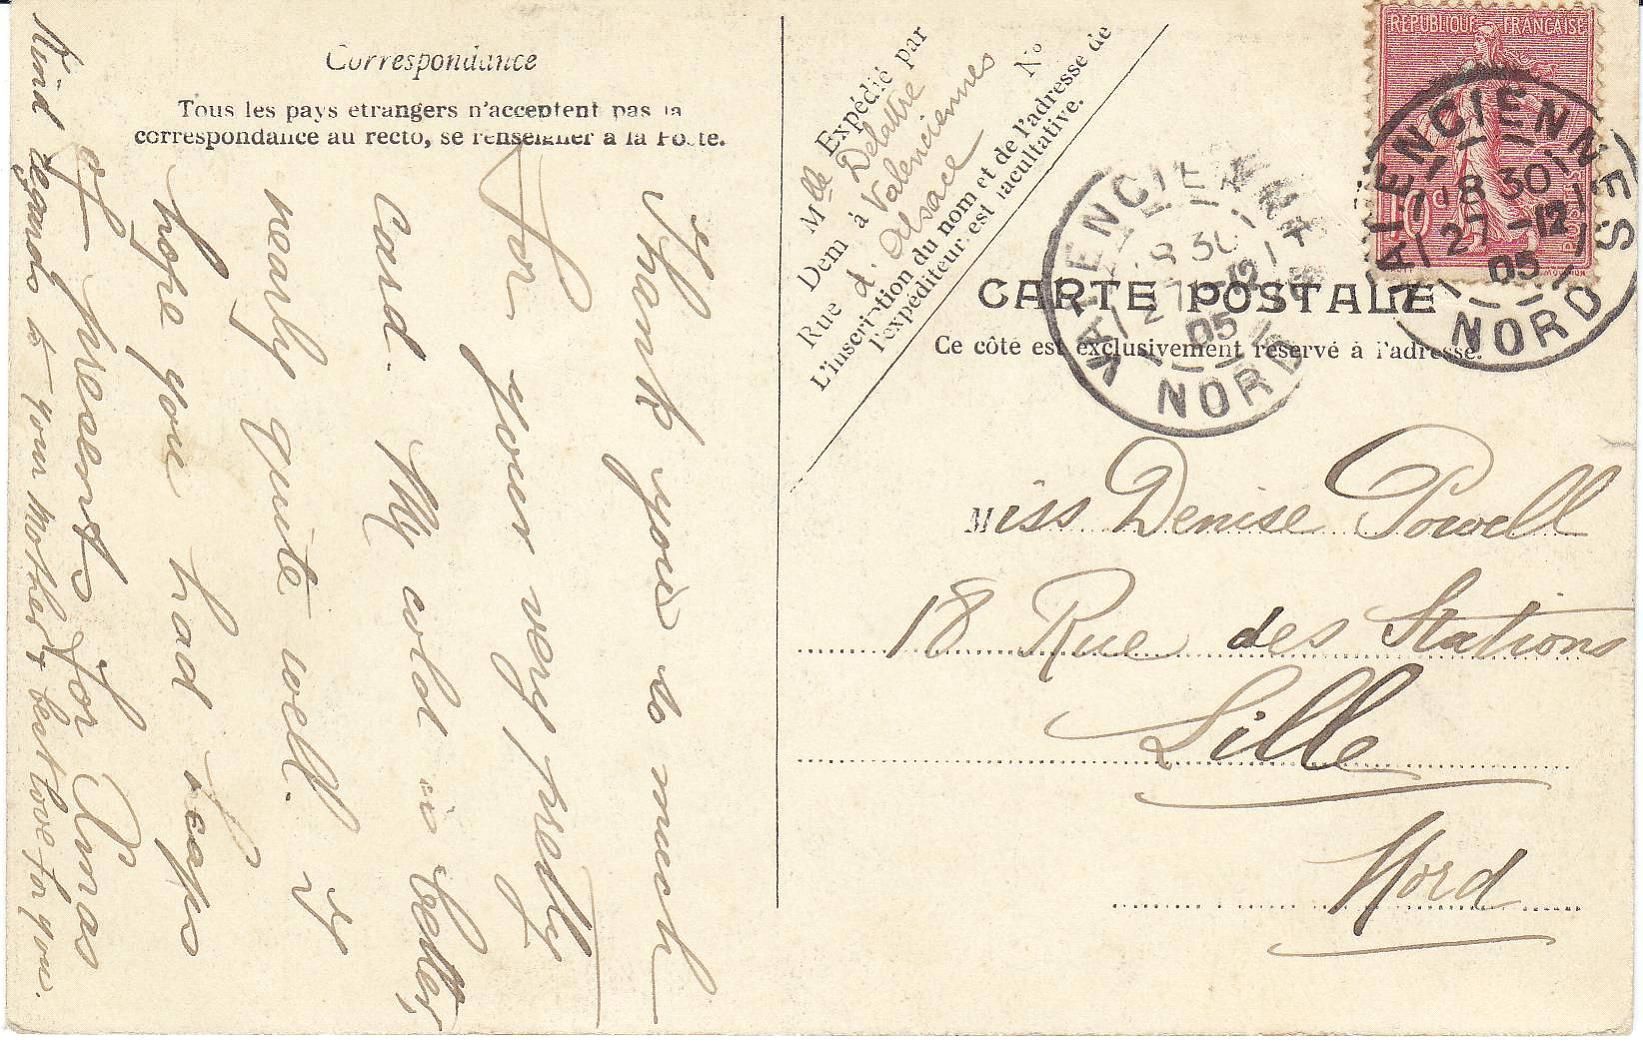 Correspondance
Tous les pays etrangers n'acceptent pas la
correspondance au recto, se renseigner a la Poste.
Thank you so much
for your very pretty
Card. My cold is better,
nearly quite well. I
hope you had heaps
of presents for Xmas
Kind regards to your Mother & best love for you.
Expédié par
Mlle Delattre
Dem à Valenciennes
Rue d'Alsace No
L'inscription du nom et de l'adresse de
l'expéditeur est facultative.
REPUBLIQUE FRANÇAISE
10c
POSTES
VALENCIENNES
18 30
27 -12
05
NORD
VALENCIENNES
18 30
27 -12
05
NORD
CARTE POSTALE
Ce côté est exclusivement réservé à l'adresse.
Miss Denise Powell
18 Rue des Stations
Lille
Nord